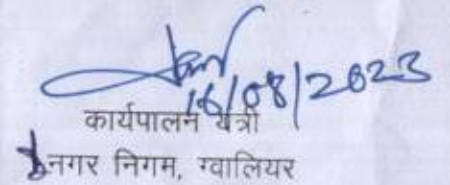 16/08/2023
कार्यपालन यंत्री
नगर निगम, ग्वालियर